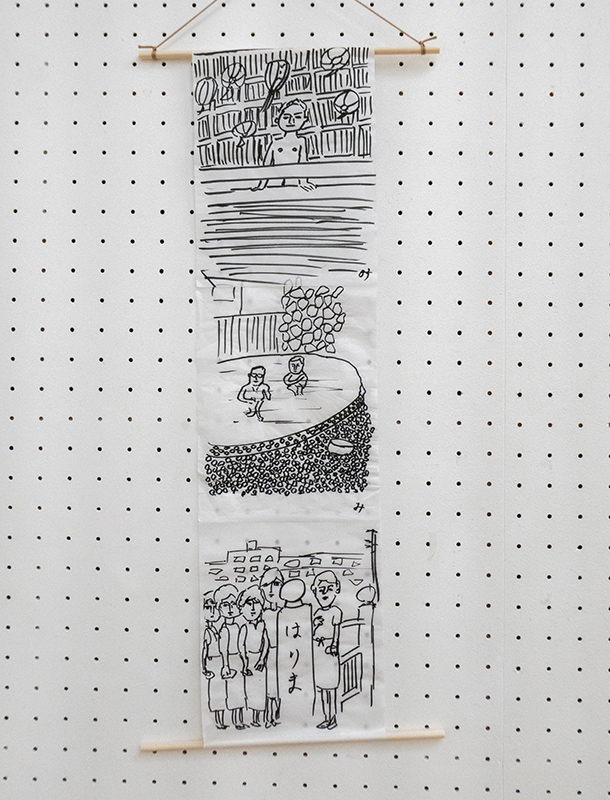 み
み
はりま